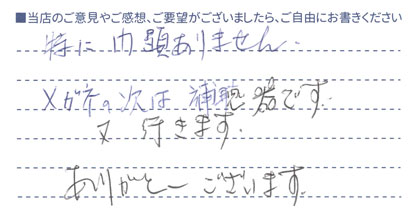 ■当店のご意見やご感想、ご要望がございましたら、ご自由にお書きください
特に問題ありません.
メガネの次は補聴器です.
又行きます.
ありがとーございます.